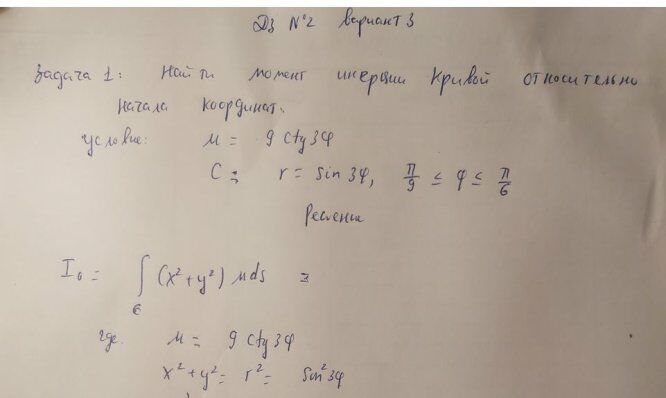 ДЗ №2 вариант 3
Задача 1: Найти момент инерции кривой относительно
начала координат.
условие: μ = 9 ctg 3φ
C = r = sin 3φ, π/9 ≤ φ ≤ π/6
Решение
I₀ = ∫_C (x² + y²) μ ds =
где. μ = 9 ctg 3φ
x² + y² = r² = sin² 3φ